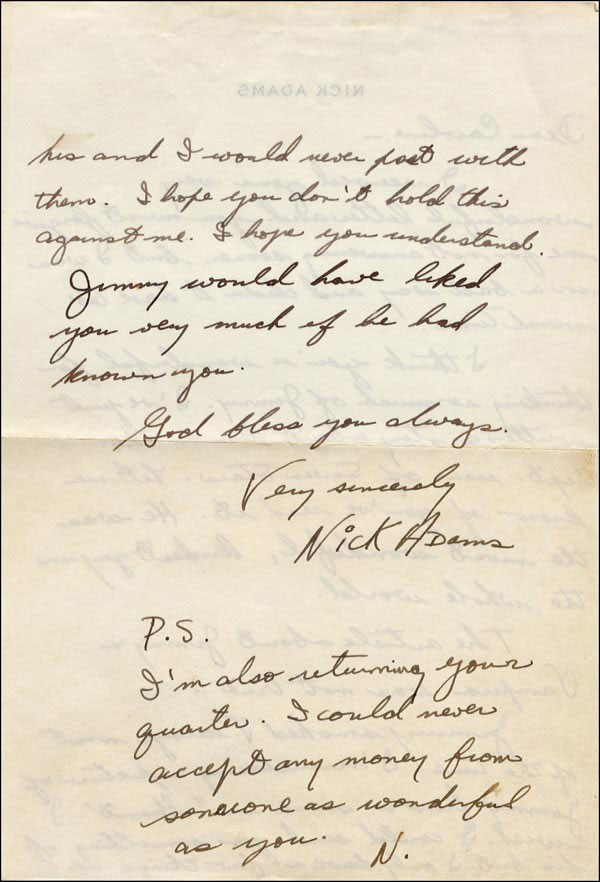 his and I would never part with
them. I hope you don't hold this
against me. I hope you understand.
Jimmy would have liked
you very much if he had
known you.
God bless you always.
Very sincerely
Nick Adams
P.S.
I'm also returning your
quarter. I could never
accept any money from
someone as wonderful
as you. N.